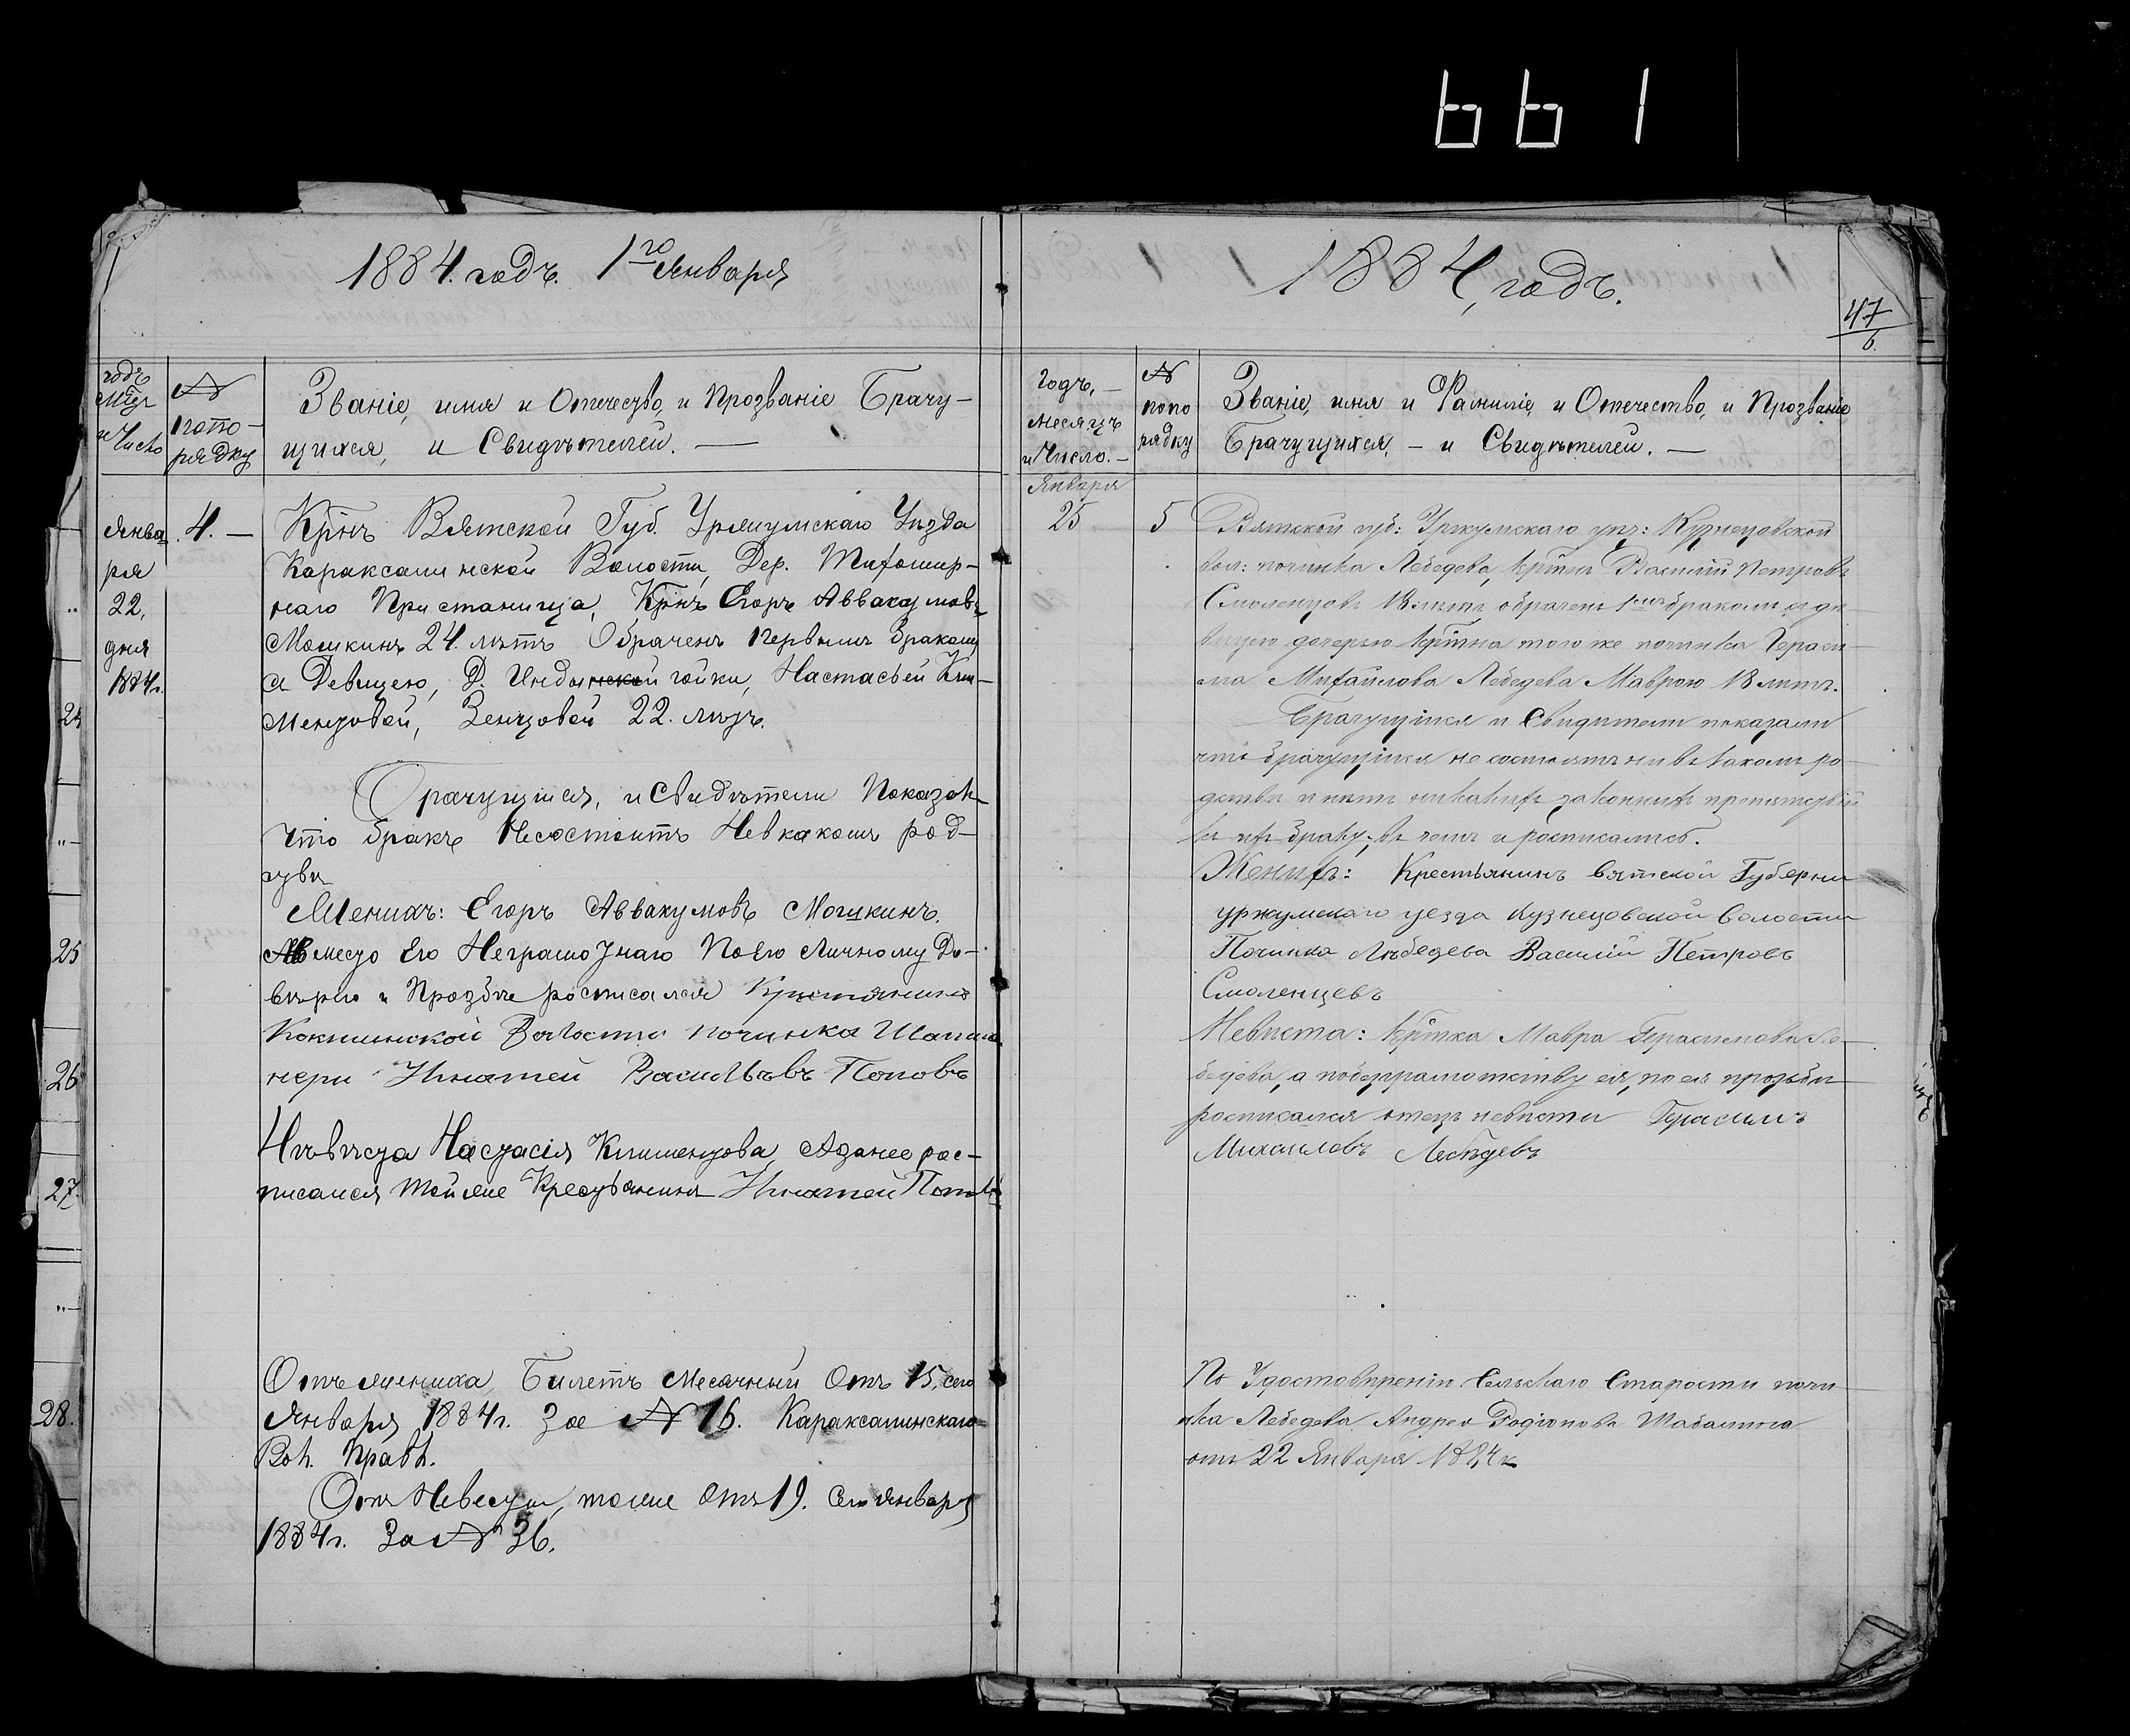 661
1884. годъ. 1го Января
годъ
Мѣц
и Число
№
попо-
рядку
Званіе, имя и Отечество, и Прозваніе Брачу-
щихся, и Свидѣтелей. —
Янва
ря
22,
дня
1884г.
4. —
Крнъ Вятской Губ. Уржумскаго Уѣзда
Караксалинской Волости, Дер. Тихомир-
наго Пристаница, Крнъ Егоръ Аввакумовъ
Мошкинъ 24. лѣтъ Обраченъ первымъ бракомъ
съ Девицею, Д. Настасьей Кли-
ментовой, Зенцовой 22. лѣтъ.
Брачущіися, и Свидѣтели Показал
Что бракъ Несостоитъ Невкакомъ род-
ствѣ
Женихъ: Егоръ Аввакумовъ Мошкинъ.
Авместо Его Неграмотнаго По Его Личному До-
вѣрію и Прозбѣ росписался Крестьянинъ
Кокшинской Волости починка Шапши
нери Игнатей Васильевъ Поповъ
Нѣвѣста Настасія Климентова, Азанее рос-
писался Тойже Крестьянинъ Игнатей Поповъ
Отъ жениха, Билетъ Месячный Отъ 15, сего
Января 1884г. За № 16. Караксалинскаго
Вол. Правл.
Отъ Невесты, тоже Отъ 19. Сего Января
1884г. За № 36.
24
25
26
27
28.
1884, годъ.
47
6.
Годъ, —
месяцъ
и Число. —
№
попо
рядку
Званіе, имя и Фамиліе, и Отечество, и Прозваніе
Брачущихся, — и Свидѣтелей. —
Января
25
5
Вятской губ: Уржумскаго уѣз: Кузнецовской
вол: починка Лебедева, крѣтнъ Василій Петровъ
Смоленцовъ 18 лѣтъ обраченъ 1мъ бракомъ съ дѣ-
вицею дочерью крѣтна того же починка Гераси-
ма Михайлова Лебедева Маврою 18 лѣтъ.
Брачущіися и Свидѣтели показали
что брачущіися не состоятъ ни въ какомъ ро-
дствѣ и нѣтъ никакихъ законныхъ препятствій
къ ихъ браку; въ чемъ и росписались.
Женихъ: Крестьянинъ вятской Губерни
уржумскаго уезда Кузнецовской волости
Починка Лѣбедева Василій Петровъ
Смоленцевъ
Невѣста: крѣтка Мавра Герасимова Ле-
бедева, а по безграмотству ея, по ея прозьбѣ
росписался отецъ невѣсты Герасимъ
Михаиловъ Лебѣдевъ
По Удостовѣренію Сельскаго Старосты почи
нка Лебедева Андрея Родіонова Шабалина
отъ 22 Января 1884г.